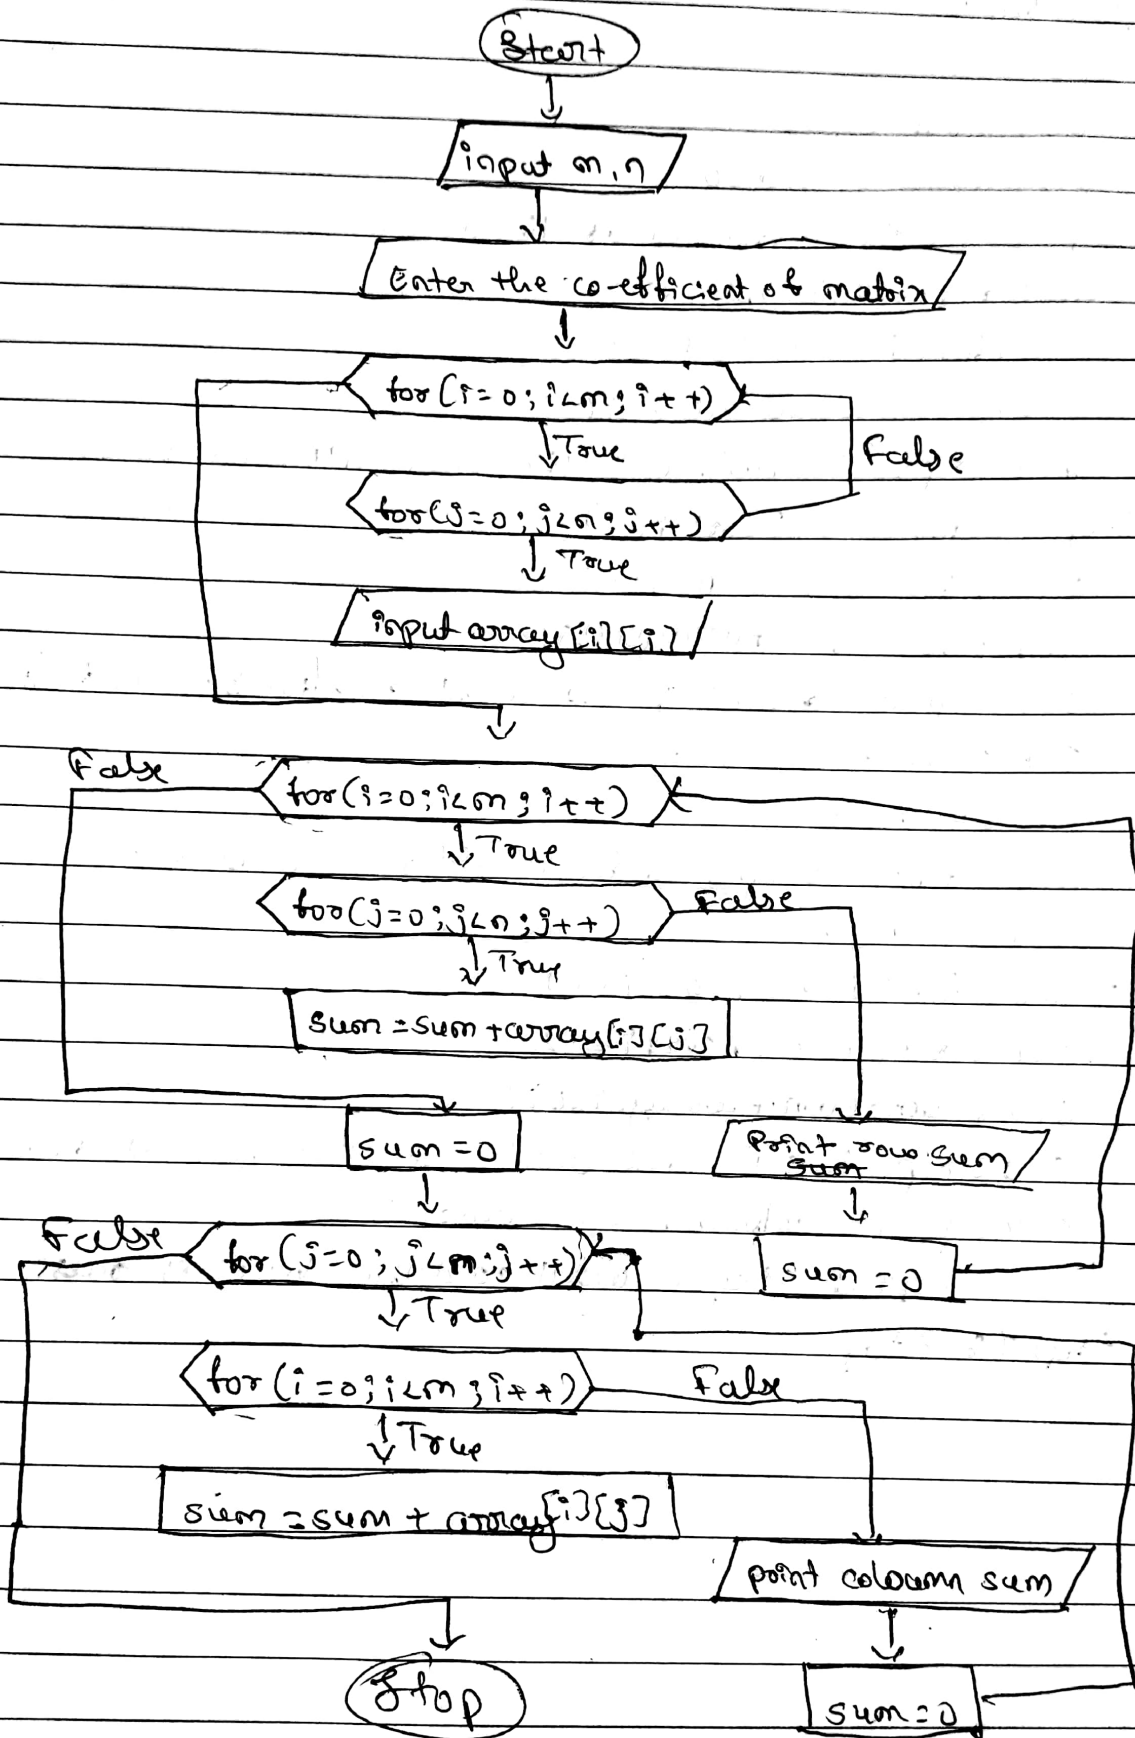 Start
input m, n
Enter the co-efficient of matrix
for (i=0; i<m; i++)
True
False
for (j=0; j<n; j++)
True
input array [i] [j]
False
for (i=0; i<m; i++)
True
for (j=0; j<n; j++)
False
True
sum = sum + array [i] [j]
sum = 0
Print row sum
sum
False
for (j=0; j<n; j++)
sum = 0
True
for (i=0; i<m; i++)
False
True
sum = sum + array [i] [j]
print coloumn sum
Stop
sum = 0